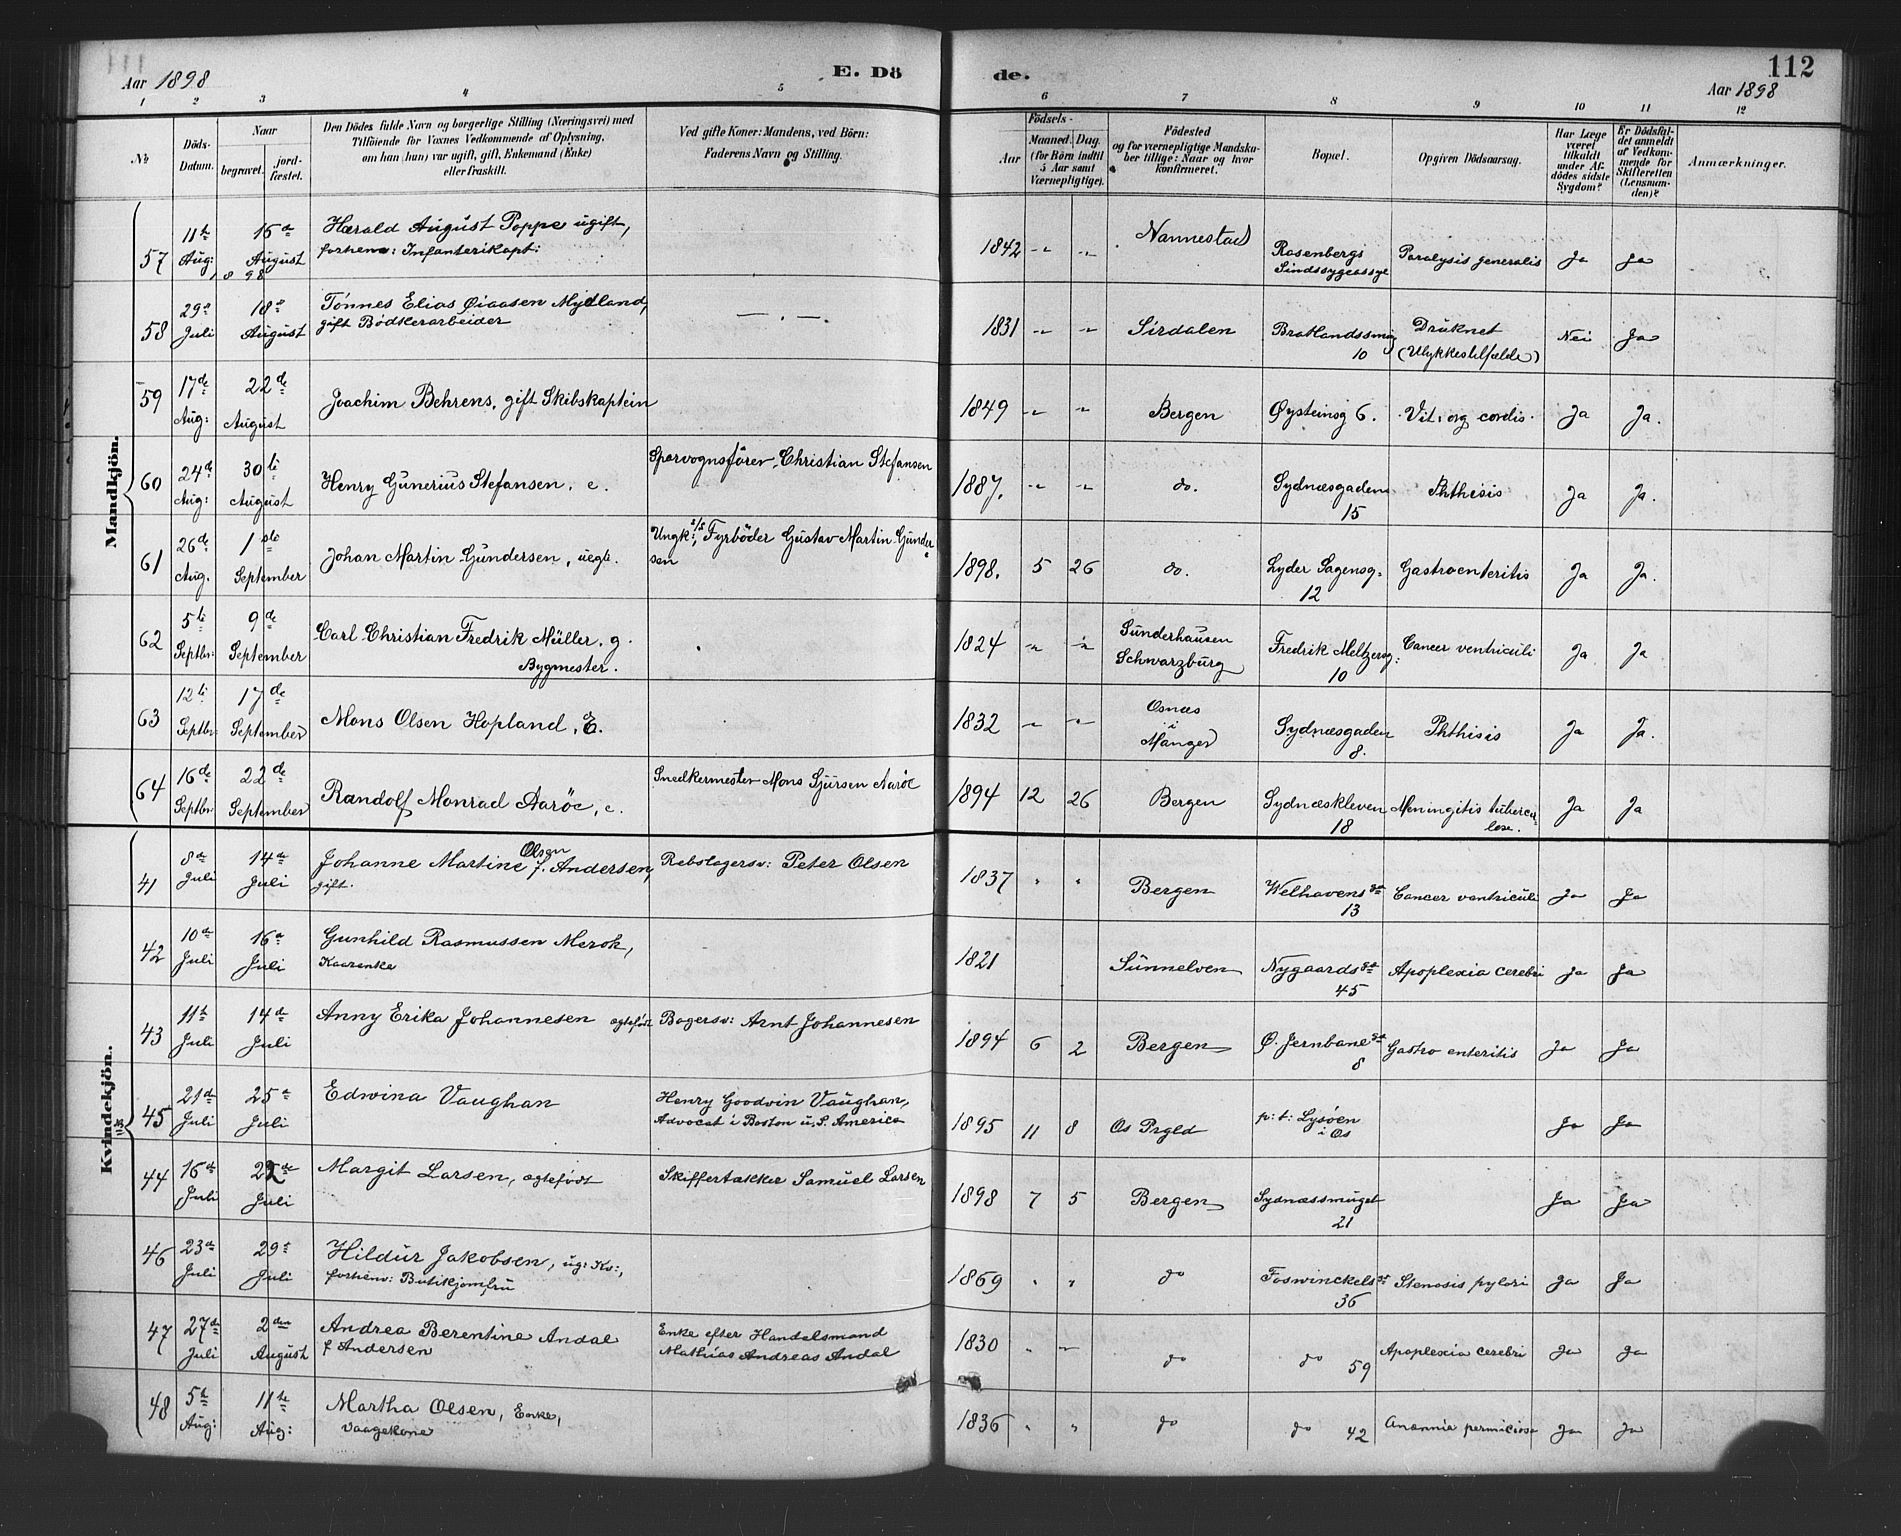 Aar 1898
E. Dö
de.
112
Aar 1898
1 2 3 4 5 6 7 8 9 10 11 12
No
Döds-Datum.
Naar
begravet.
jord-fæstet.
Den Dödes fulde Navn og borgerlige Stilling (Næringsvei) med
Tilföiende for Voxnes Vedkommende af Oplysning,
om han (hun) var ugift, gift, Enkemand (Enke)
eller fraskilt.
Ved gifte Koner: Mandens, ved Börn:
Faderens Navn og Stilling.
Födsels-
Aar
Maaned. Dag.
(for Börn indtil
5 Aar samt
Værnepligtige).
Födested
og for værnepligtige Mandska-
ber tillige: Naar og hvor
konfirmeret.
Bopæl.
Opgiven Dödsaarsag.
Har Læge
været
tilkaldt
under Af-
dödes sidste
Sygdom?
Er Dödsfal-
det anmeldt
af Vedkom-
mende for
Skifteretten
(Lensman-
den)?
Anmærkninger.
Mandkjön.
57 11te Aug: 1898 16de August Harald August Poppe ugift, forhenv: Infanterikapt: 1842 Nannestad Rosenbergs Sindssygeasyl Paralysis generalis Ja Ja
58 29de Juli 18de August Tönnes Elias Öiaasen Mydland, gift Bödkerarbeider 1831 Sirdalen Bratlandssmug 10 Druknet (Ulykkestilfælde) Nei Ja
59 17de Aug: 22de August Joachim Behrens, gift Skibskaptein 1849 Bergen Øysteinsg 6. Vit. org cordis Ja Ja.
60 24de Aug: 30te August Henry Gunerius Stefansen, e. Sporvognsförer Christian Stefansen 1887. do. Sydnæsgaden 15 Phthisis Ja Ja.
61 26de Aug. 1ste September Johan Martin Gundersen, uegte. Ungk:, Fyrböder Gustav Martin Gundersen 1898. 5 26 do. Lyder Sagensg. 12 Gastroenteritis Ja Ja.
62 5te Septbr: 9de September Carl Christian Fredrik Müller, g. Bygmester. 1824 Sunderhausen Schwarzburg Fredrik Meltzersg: 10 Cancer ventriculi Ja Ja
63 12te Septbr: 17de September Mons Olsen Hopland, E. 1832 Osnæs i Manger Sydnæsgaden 8. Phthisis Ja Ja.
64 16de Septbr: 22de September Randolf Monrad Aaröe, e. Snedkermester Mons Sjursen Aaröe 1894 12 26 Bergen Sydnæskleven 18 Meningitis tuberculose. Ja Ja
Kvindekjön.
41 8de Juli 14de Juli Johanne Martine Olsen f. Andersen, gift. Rebslagersv: Peter Olsen 1837 Bergen Welhavensgt 13 Cancer ventriculi Ja Ja
42 10de Juli 16de Juli Gunhild Rasmussen Merok, Kaarenke 1821 Sunnelven Nygaardsgt 45 Apoplexia cerebri Ja Ja
43 11te Juli 14de Juli Anny Erika Johannesen ægtefödt Bagersv: Arnt Johannesen 1894 6 2 Bergen Ø. Jernbanegt 8 Gastro enteritis Ja Ja
45 21de Juli 25de Juli Edwina Vaughan Henry Goodvin Vaughan, Advocat i Boston u. S. America 1895 11 8 Os Prgld p: t: Lysöen i Os Ja Ja
44 16de Juli 22de Juli Margit Larsen, ægtefödt Skiffertækker Samuel Larsen 1898 7 5 Bergen Sydnæssmuget 21 Ja Ja
46 23de Juli 29de Juli Hildur Jakobsen, ug: Kv:, forhenv: Butikjomfru 1869 do Foswinckelsgt 36 Stenosis pylori Ja Ja
47 27de Juli 2den August Andrea Berentine Andal f Andersen Enke efter Handelsmand Mathias Andreas Andal 1830 do do 59 Apoplexia cerebri Ja Ja
48 5te Aug: 11te Aug: Martha Olsen, Enke, Vaagekone 1836 do do 42 Anæmia perniciosa Ja Ja